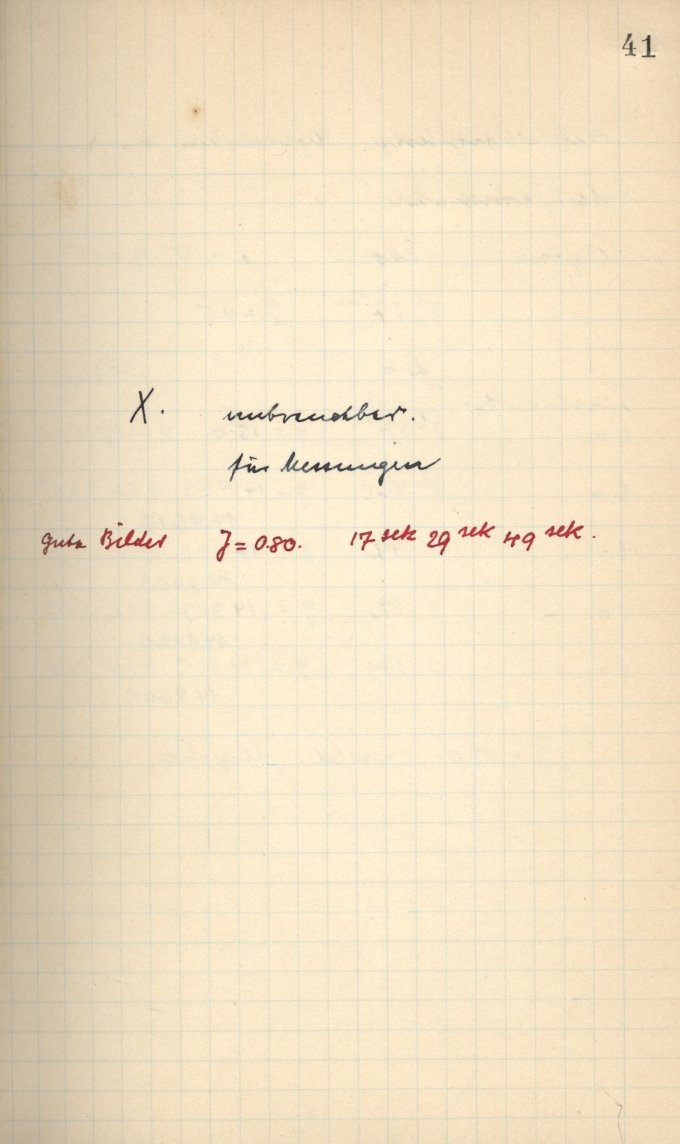 41
X. unbrauchbar.
für Messungen
gute Bilder J = 0.80. 17 sek 29 sek 49 sek.